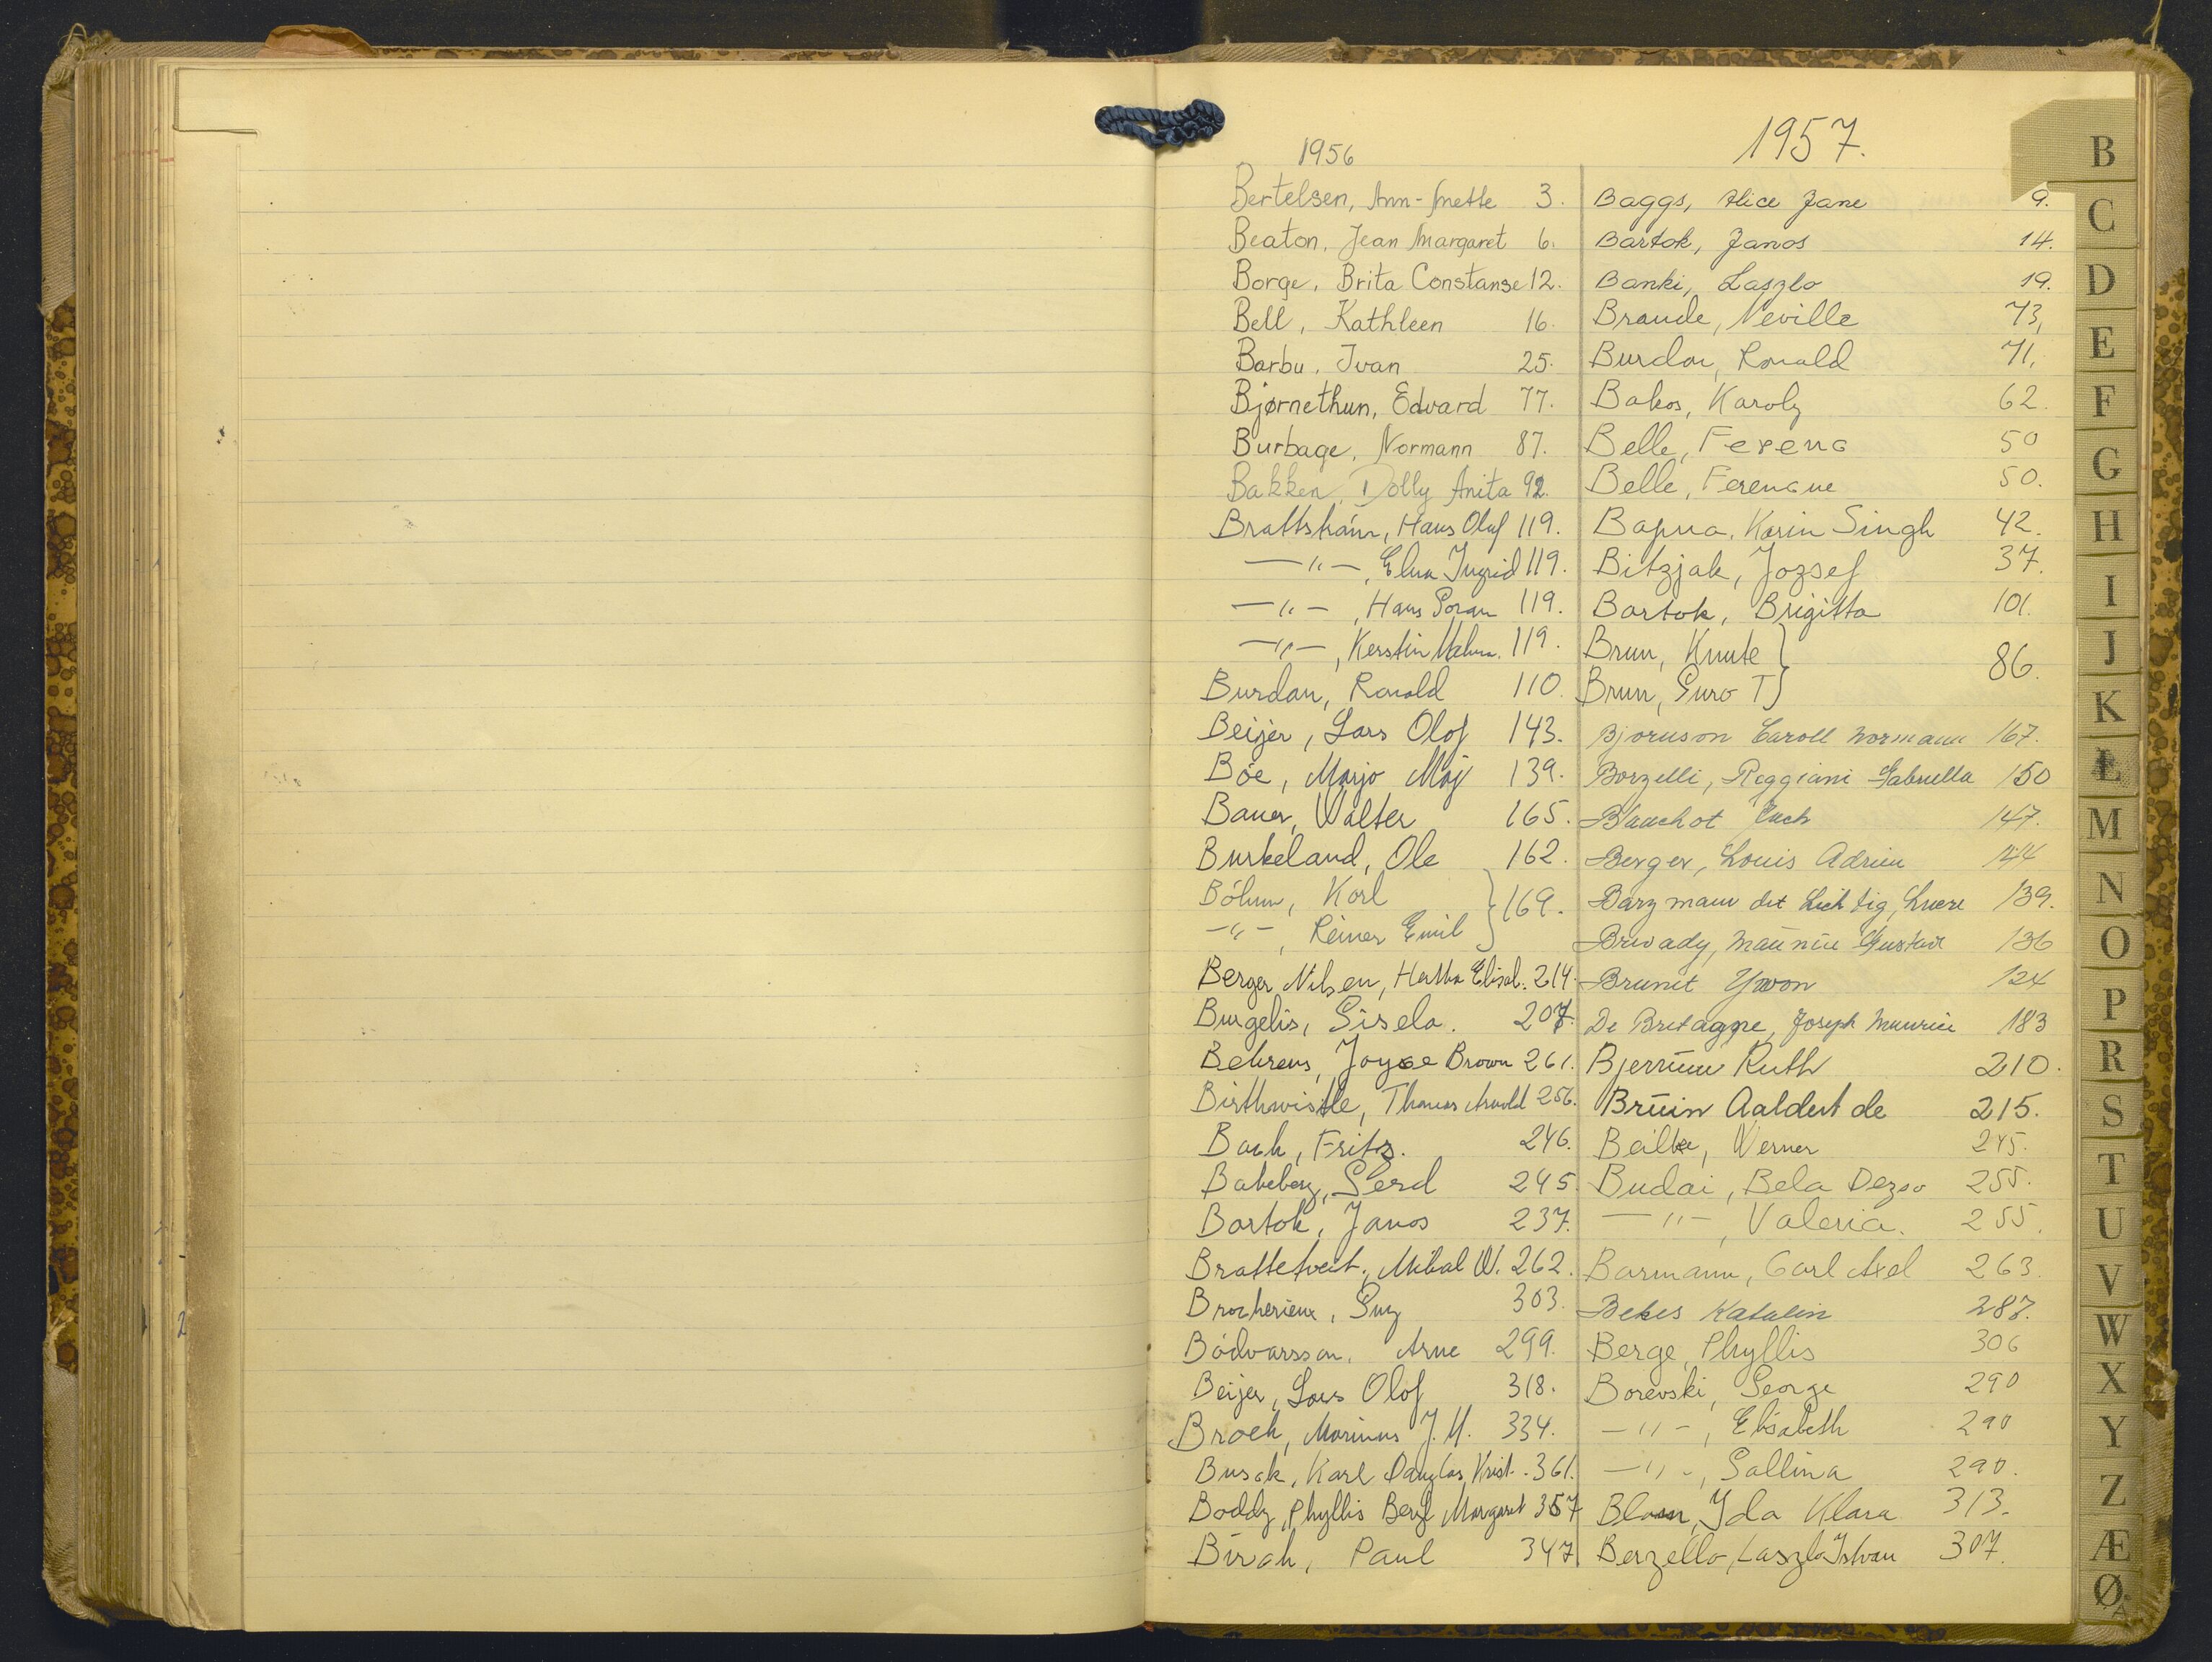 1956
Bertelsen, Ann-Mette 3.
Beaton, Jean Margaret 6.
Borge, Brita Constanse 12.
Bell, Kathleen 16.
Barbu, Ivan 25.
Bjørnethun, Edvard 77.
Burbage, Normann 87.
Bakken, Dolly Anita 92.
Brattström, Hans Olof 119.
—"—, Elna Ingrid 119.
—"—, Hans Göran 119.
—"—, Kerstin 119.
Burdon, Ronald 110.
Beijer, Lars Olof 143.
Böe, Marjo Maj 139.
Bauer, Walter 165.
Burkeland, Ole 162.
Böhm, Karl } 169.
—"—, Reiner Emil
Berger Nilsen, Hertha Elisab. 214.
Burgelis, Gisela. 207.
Behrens, Joyce Brown 261.
Birthwistle, Thomas Arnold 256.
Bach, Fritz. 246.
Bakeberg, Gerd 245.
Bartok, Janos 237.
Brattetveit, Mikal W. 262.
Brocherieux, Guy 303.
Bödvarsson, Arne 299.
Beijer, Lars Olof 318.
Broek, Marinus J. H. 334.
Busck, Karl Douglas Krist. 361.
Boddy, Phyllis Beryl Margaret 357
Birch, Paul 347.
1957.
Baggs, Alice Jane 9.
Bartok, Janos 14.
Banki, Laszlo 19.
Braude, Neville 73,
Burdon, Ronald 71,
Bakos, Karoly 62.
Belle, Ferenc 50
Belle, Ferencne 50.
Bapna, Karin Singh 42.
Bitzjak, Jozsef 37.
Bartok, Brigitta 101.
Brun, Knute } 86.
Brun, Guro T
Bjornson Caroll Normann 167.
Borzelli, Reggiani Gabriella 150
Blanchot 147.
Berger, Louis Adrien 144
Barzmann det Lichtig, 139.
Maurice Gustave 136
Brunit Yvon 124
De Bretagne, Joseph Maurice 183
Bjerrum Ruth 210.
Bruin Aaldert de 215.
Beilke, Werner 245.
Budai, Bela Dezso 255.
—"—, Valeria. 255.
Barmann, Carl Axel 263.
Bekes Katalin 287.
Berge, Phyllis 306
Borevski, George 290
—"—, Elisabeth 290
—"—, Gallina 290.
Blom, Ida Klara 313.
Berzello, Laszlo Istvan 307.
B
C
D
E
F
G
H
I
J
K
L
M
N
O
P
R
S
T
U
V
W
X
Y
Z
Æ
Ø
Å
2